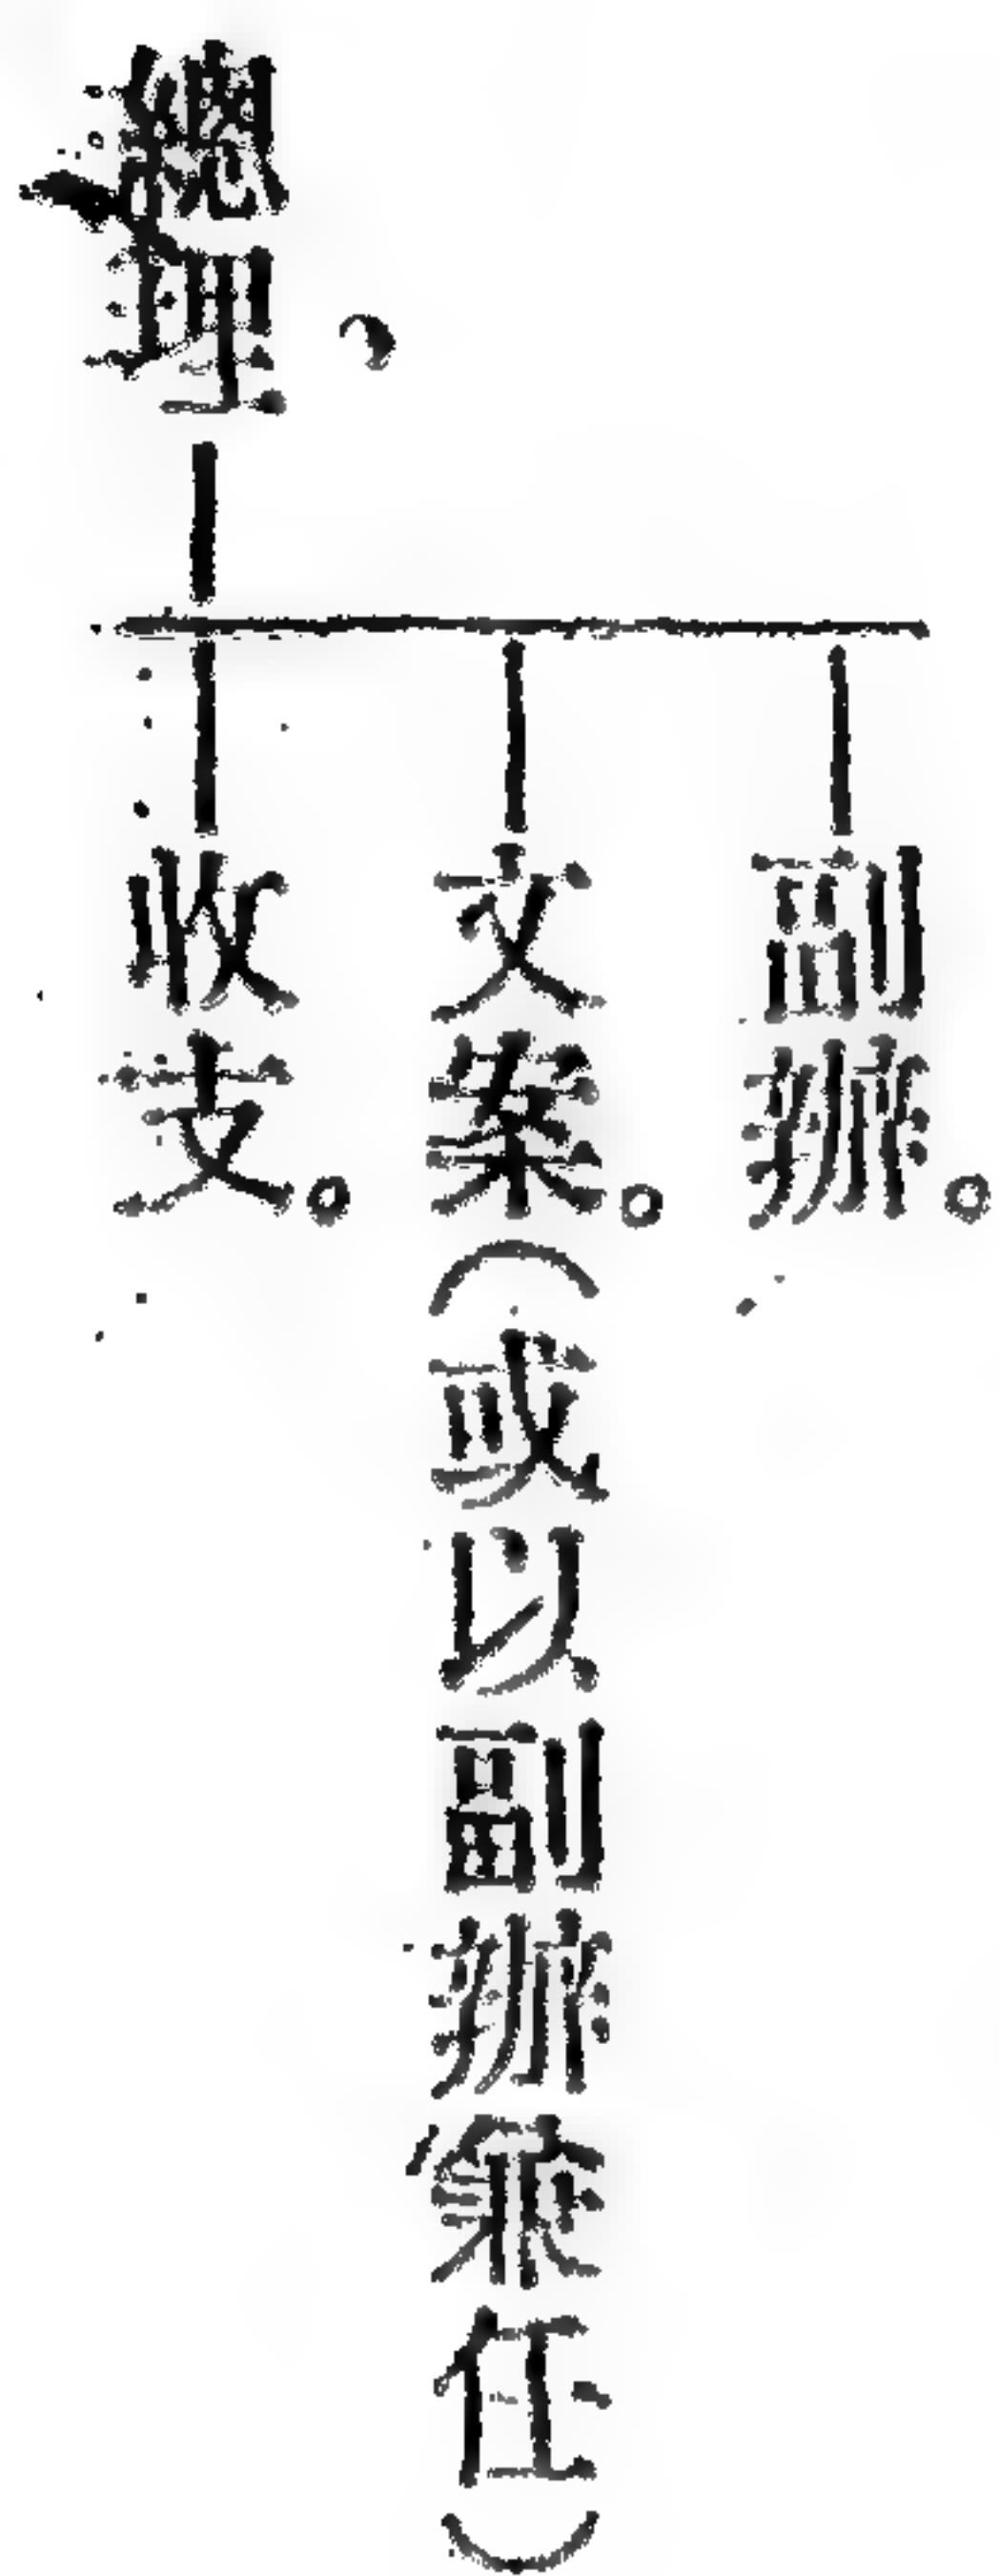 總理、
副辦。
文案。(或以副辦兼任)
收支。